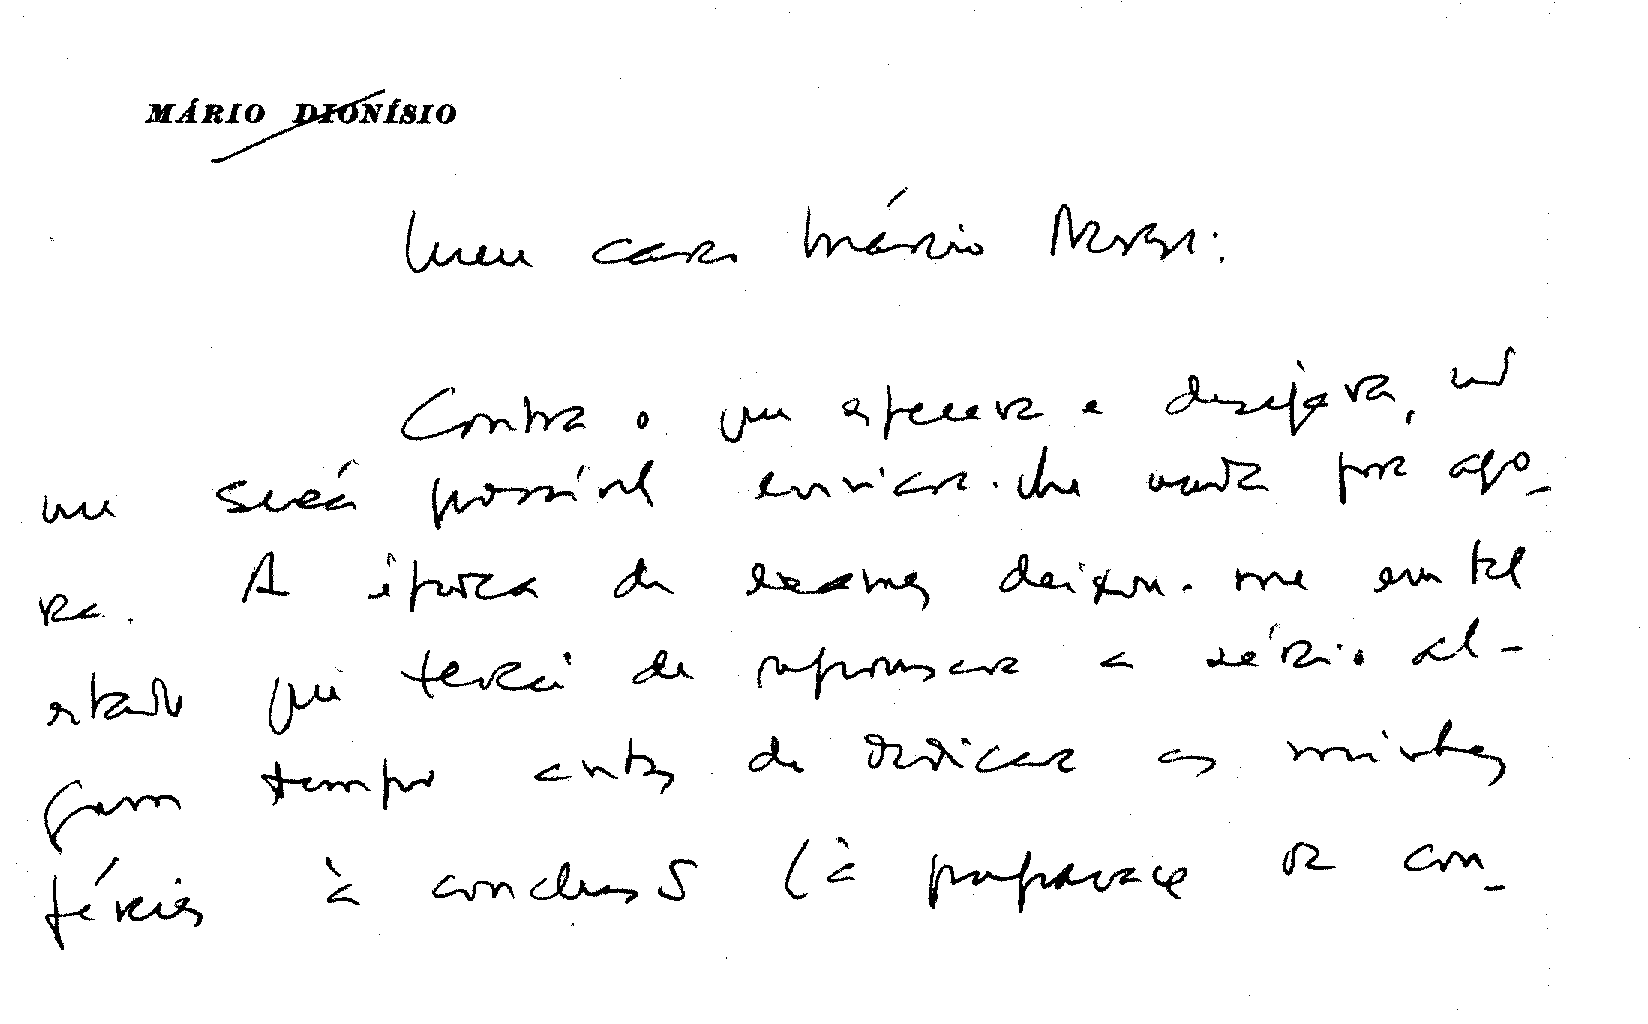 MÁRIO DIONÍSIO
Meu caro Mário
Contra o que esperava e desejava, não
me será possível enviar-lhe nada por ago-
ra. A época de exames deixou-me em tal
estado que terei de repousar a sério al-
gum tempo antes de dedicar as minhas
férias à conclusão (à preparação da con-